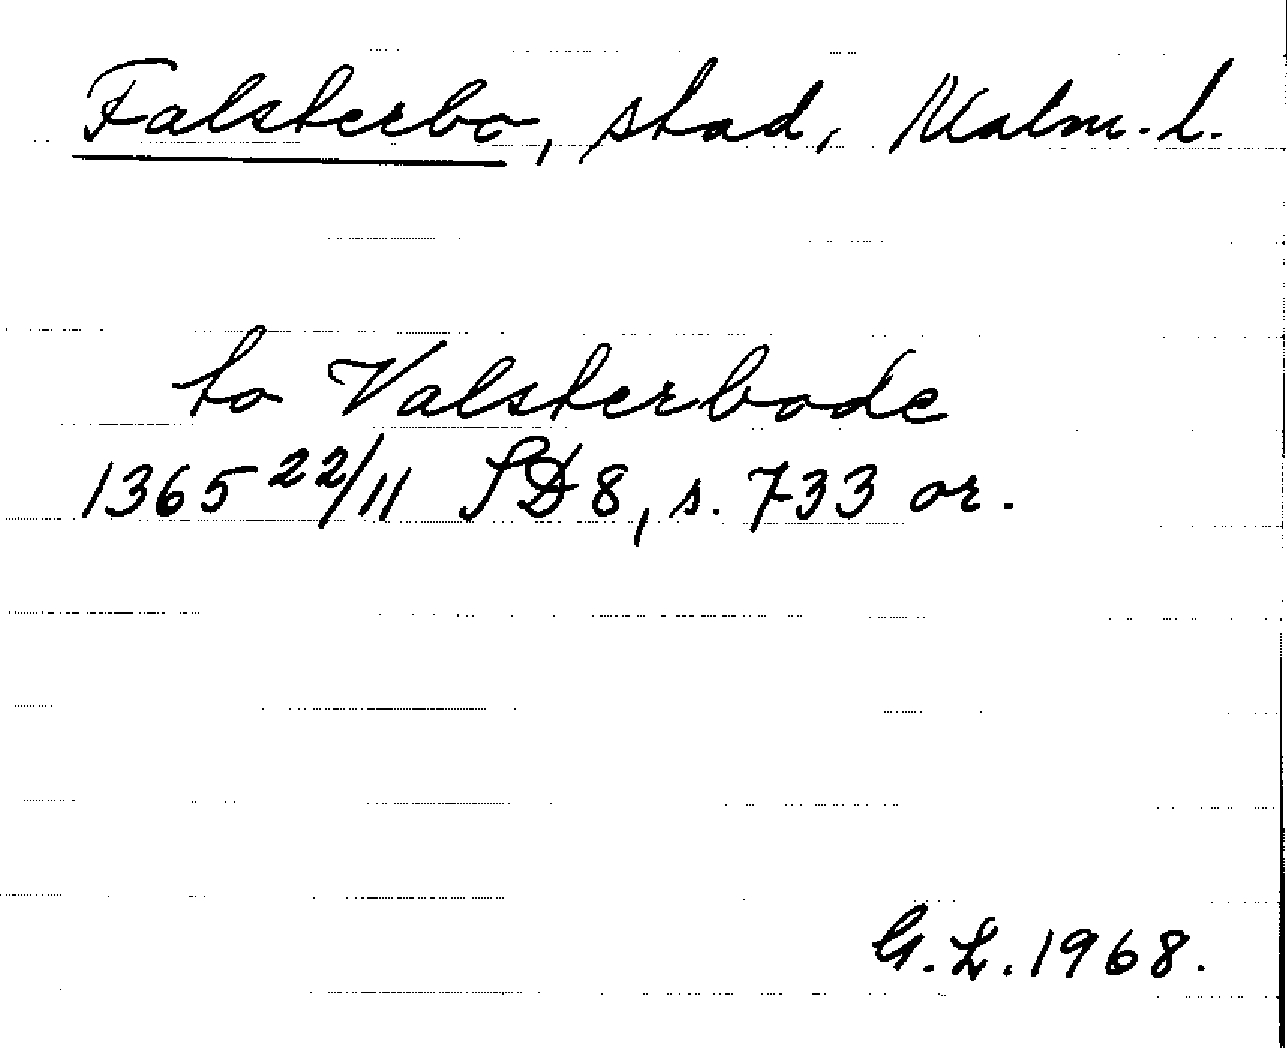 Falsterbo, stad, Malm. l.
to Valsterbode
1365 22/11 SD 8, s. 733 or.
G. L. 1968.